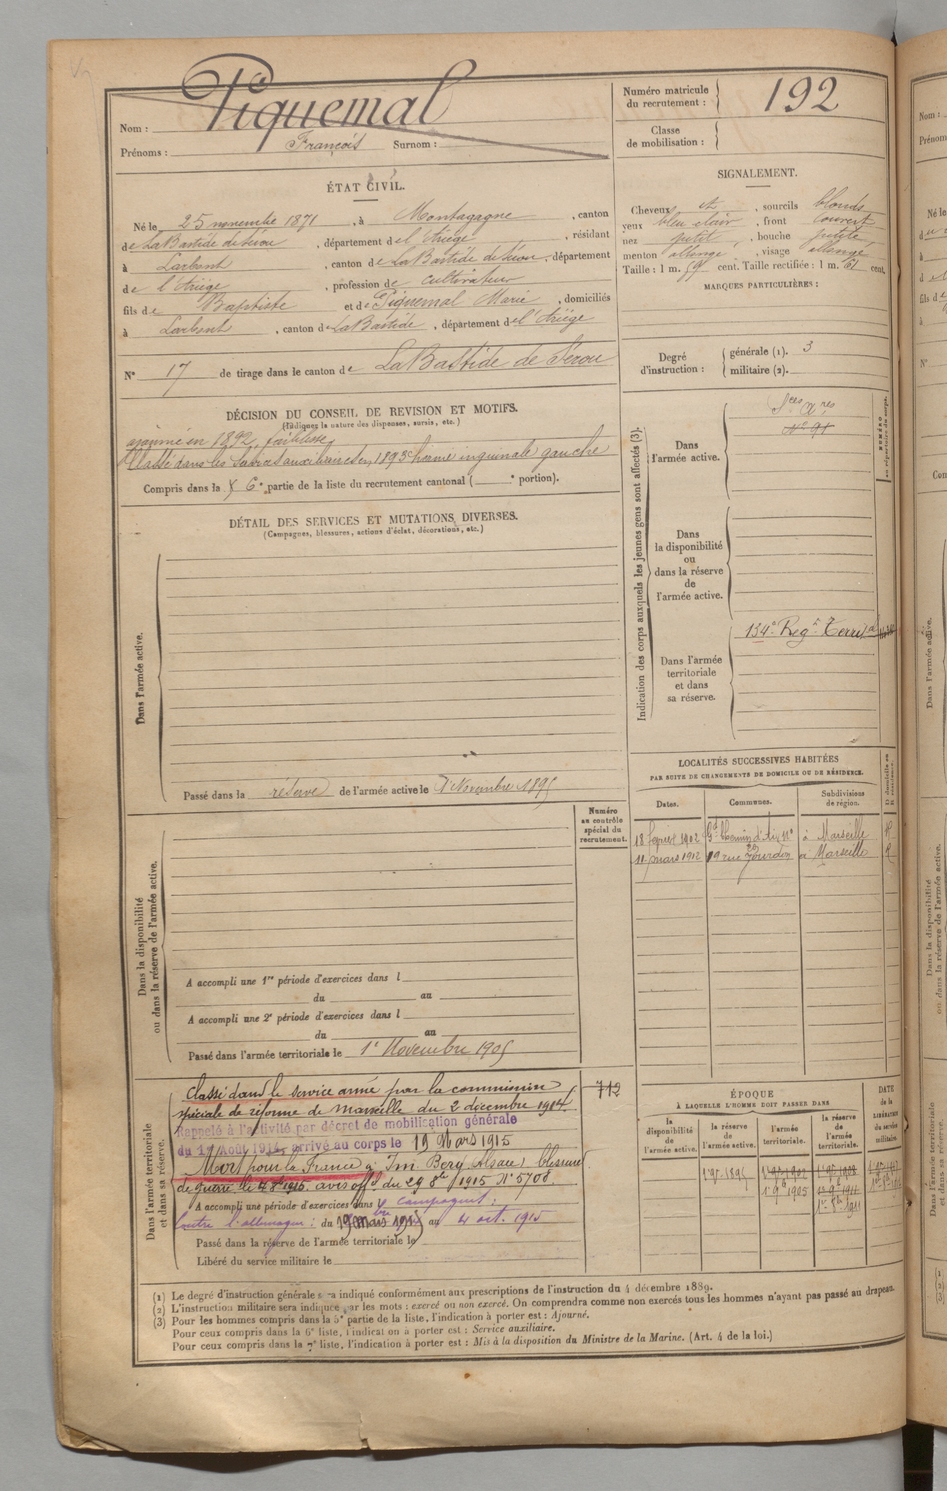 Piquemal
Nom :
Prénoms : François Surnom :
Numéro matricule
du recrutement : 192
Classe
de mobilisation :
ÉTAT CIVIL.
Né le 25 novembre 1871, à Montagagne, canton
de La Bastide de Sérou, département de l'Ariège, résidant
à Larbont, canton de La Bastide de Sérou, département
de l'Ariège, profession de cultivateur
fils de Baptiste et de Piquemal Marie, domiciliés
à Larbont, canton de La Bastide, département de l'Ariège
N° 17 de tirage dans le canton de La Bastide de Sérou
SIGNALEMENT.
Cheveux et, sourcils blonds
yeux bleu clair, front couvert
nez petit, bouche petite
menton allongé, visage allongé
Taille : 1 m. 59 cent. Taille rectifiée : 1 m. 61 cent.
MARQUES PARTICULIÈRES :
Degré
d'instruction :
générale (1). 3
militaire (2).
DÉCISION DU CONSEIL DE REVISION ET MOTIFS.
(Indiquez la nature des dispenses, sursis, etc.)
ajourné en 1892, faiblesse
Classé dans les Services auxiliaires en 1893 hernie inguinale gauche
Compris dans la 6e partie de la liste du recrutement cantonal ( e portion).
DÉTAIL DES SERVICES ET MUTATIONS DIVERSES.
(Campagnes, blessures, actions d'éclat, décorations, etc.)
Dans l'armée active.
Passé dans la réserve de l'armée active le 1er Novembre 1895
Indication des corps auxquels les jeunes gens sont affectés (3).
NUMÉRO
au répertoire du corps.
Dans
l'armée active.
Sces Ares
N° 91
Dans
la disponibilité
ou
dans la réserve
de
l'armée active.
Dans l'armée
territoriale
et dans
sa réserve.
134e Regt Territal
LOCALITÉS SUCCESSIVES HABITÉES
PAR SUITE DE CHANGEMENTS DE DOMICILE OU DE RÉSIDENCE.
Dates. Communes. Subdivisions
de région.
D. domicile ou
R. résidence.
18 février 1902 Gd Chemin d'Aix à Marseille R
11 mars 1912 19 rue Jourdan à Marseille R
Numéro
au contrôle
spécial du
recrutement.
Dans la disponibilité
ou dans la réserve de l'armée active.
A accompli une 1re période d'exercices dans l
du au
A accompli une 2e période d'exercices dans l
du au
Passé dans l'armée territoriale le 1er Novembre 1905
Dans l'armée territoriale
et dans sa réserve.
712
Classé dans le service armé par la commission
spéciale de réforme de Marseille du 2 décembre 1914.
Rappelé à l'activité par décret de mobilisation générale
du 1er Août 1914, arrivé au corps le 19 Mars 1915
Mort pour la France à Im Berg (Alsace) blessures
de guerre le 4 8bre 1915 avis offel du 29 8bre 1915 N° 5708
A accompli une période d'exercices dans l campagnes :
Contre l'allemagne : du 19 mars 1915 au 4 oct. 1915
Passé dans la réserve de l'armée territoriale le
Libéré du service militaire le
ÉPOQUE
À LAQUELLE L'HOMME DOIT PASSER DANS
la
disponibilité
de
l'armée active.
la réserve
de
l'armée active.
l'armée
territoriale.
la réserve
de
l'armée
territoriale.
DATE
de la
LIBÉRATION
du service
militaire.
1er 9bre 1895
1er 9bre 1905
1er 8bre 1911
(1) Le degré d'instruction générale sera indiqué conformément aux prescriptions de l'instruction du 4 décembre 1889.
(2) L'instruction militaire sera indiquée par les mots : exercé ou non exercé. On comprendra comme non exercés tous les hommes n'ayant pas passé au drapeau.
(3) Pour les hommes compris dans la 5e partie de la liste, l'indication à porter est : Ajourné.
Pour ceux compris dans la 6e liste, l'indication à porter est : Service auxiliaire.
Pour ceux compris dans la 7e liste, l'indication à porter est : Mis à la disposition du Ministre de la Marine. (Art. 4 de la loi.)